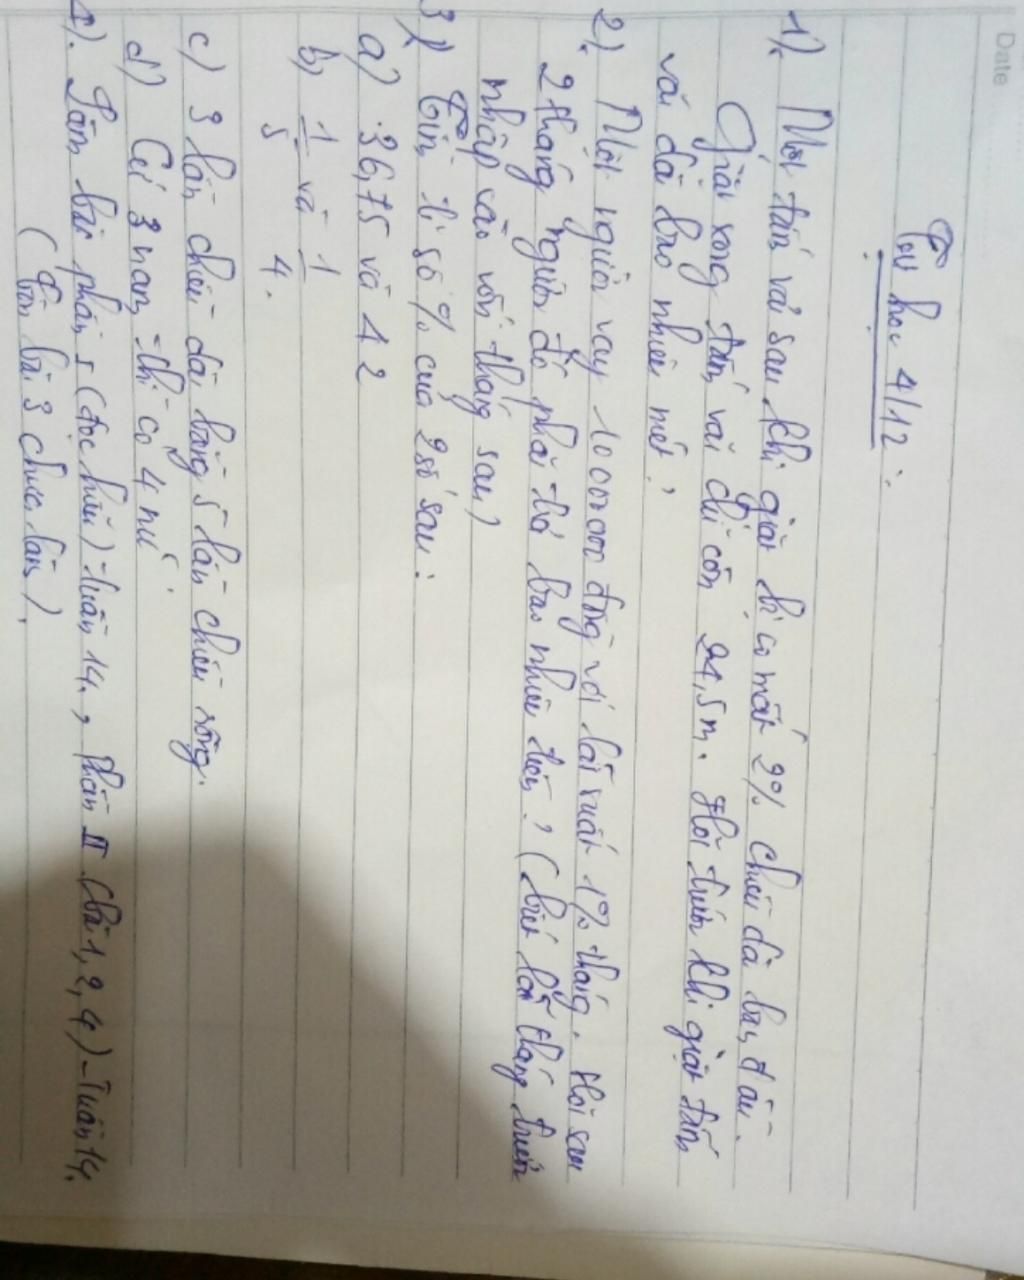 Date
Tự học 4/12:
1). Một tấm vải sau khi giặt bị co mất 2% chiều dài ban đầu.
Giặt xong tấm vải chỉ còn 24,5m. Hỏi trước khi giặt tấm
vải dài bao nhiêu mét?
2). Một người vay 10 000 000 đồng với lãi suất 1% tháng. Hỏi sau
2 tháng người đó phải trả bao nhiêu tiền? (biết lãi tháng trước
nhập vào vốn tháng sau)
3) Tìm tỉ số % của 2 số sau:
a) 36,75 và 42
b) 1/5 và 1/4.
c) 3 lần chiều dài bằng 5 lần chiều rộng.
d) Cứ 3 nam thì có 4 nữ.
4). Làm bài phần I (đọc hiểu) tuần 14, Phần II (bài 1, 2, 4) - Tuần 14.
(Còn bài 3 chưa làm).